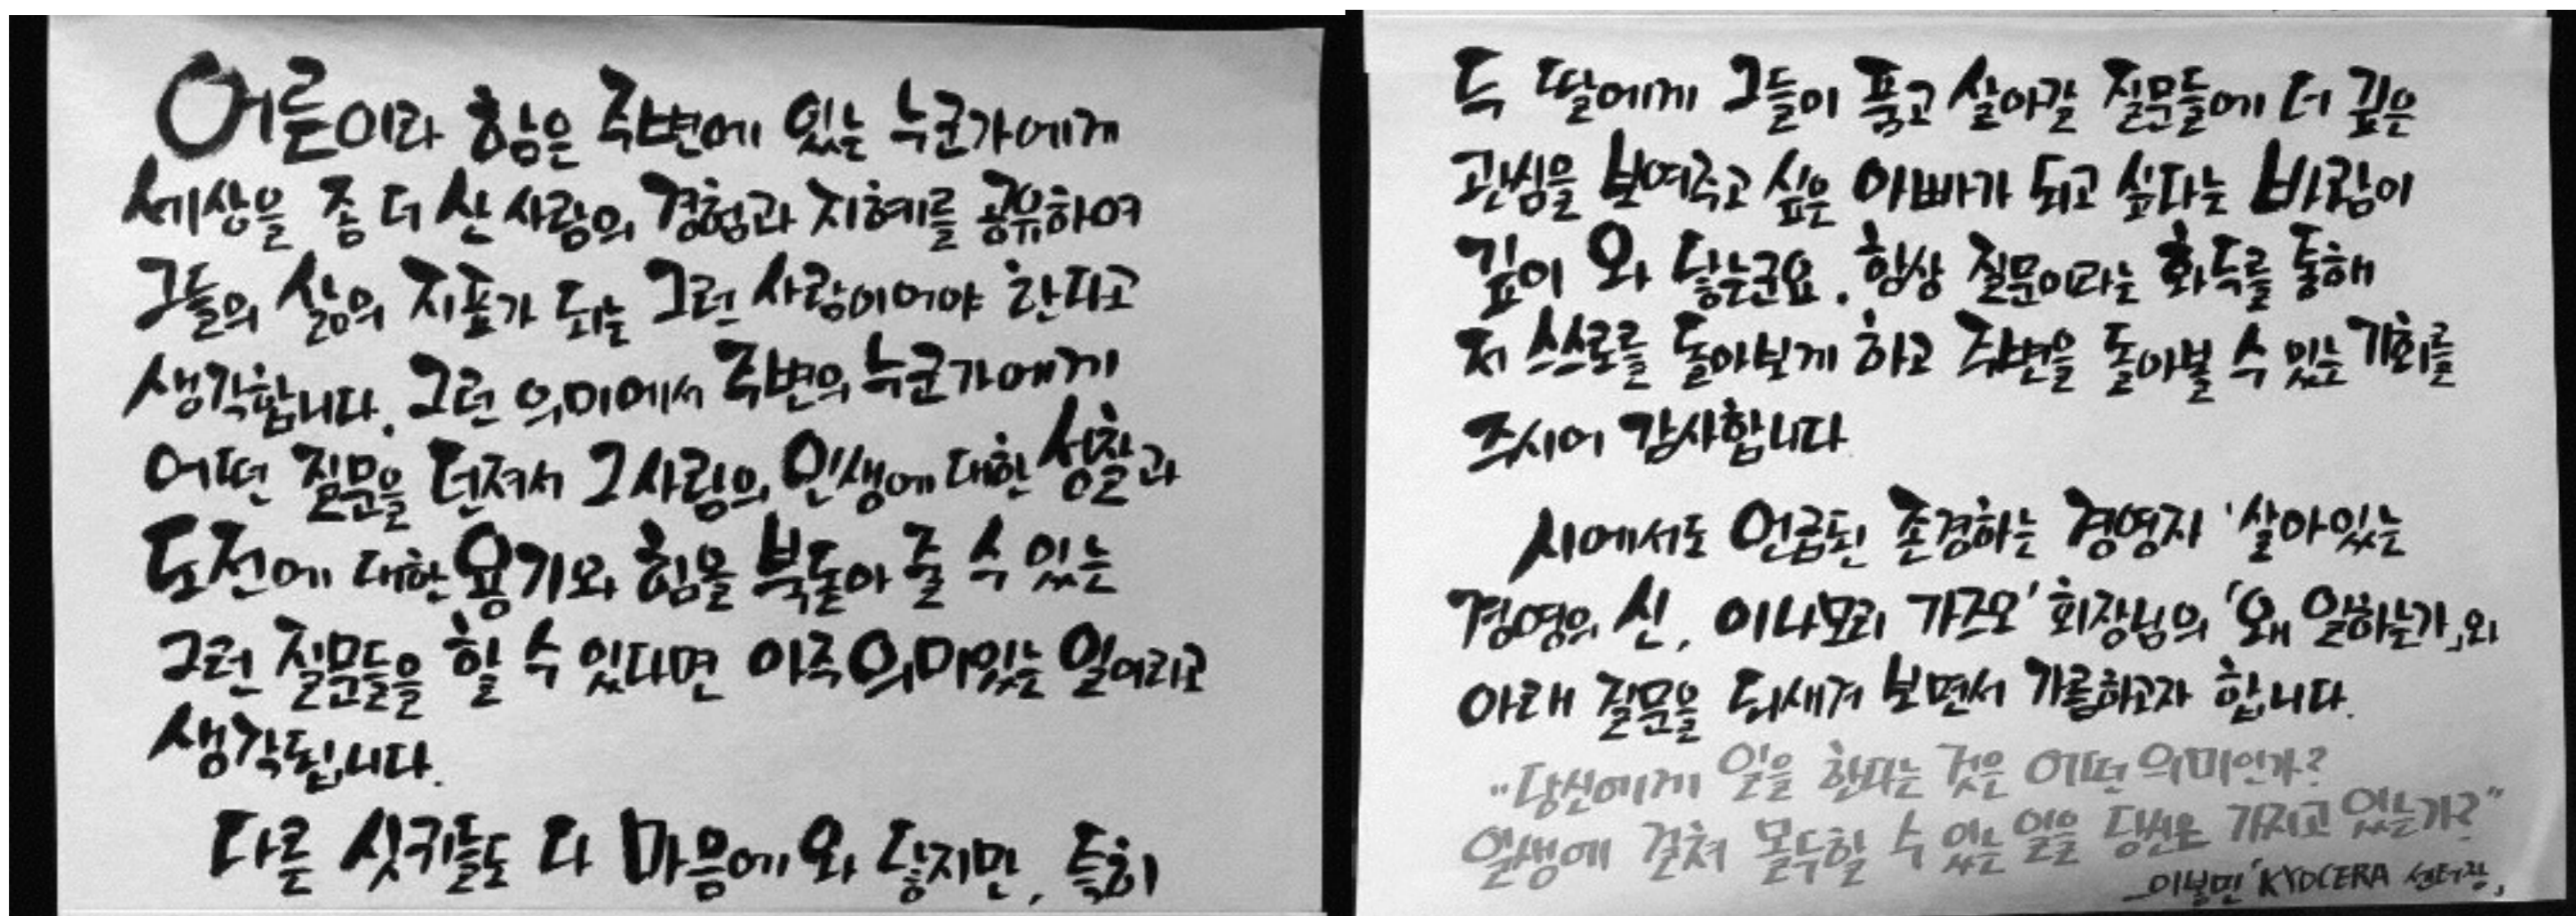 어른이라 함은 주변에 있는 누군가에게
세상을 좀 더 산 사람의 경험과 지혜를 공유하여
그들의 삶의 지표가 되는 그런 사람이어야 한다고
생각합니다. 그런 의미에서 주변의 누군가에게
어떤 질문을 던져서 그 사람의 인생에 대한 성찰과
도전에 대한 용기와 힘을 북돋아 줄 수 있는
그런 질문들을 할 수 있다면 아주 의미있는 일이라고
생각됩니다.
다른 싯귀들도 다 마음에 와 닿지만, 특히
두 딸에게 그들이 품고 살아갈 질문들에 더 깊은
관심을 보여주고 싶은 아빠가 되고 싶다는 바람이
깊이 와 닿는군요. 항상 질문이라는 화두를 통해
저 스스로를 돌아보게 하고 주변을 돌아볼 수 있는 기회를
주시어 감사합니다
시에서도 언급된 존경하는 경영자 '살아있는
경영의 신, 이나모리 가즈오' 회장님의 「왜 일하는가」와
아래 질문을 되새겨 보면서 가름하고자 합니다.
"당신에게 일을 한다는 것은 어떤 의미인가?
일생에 걸쳐 몰두할 수 있는 일을 당신은 가지고 있는가?"
_이봉민「KYOCERA 센터장」